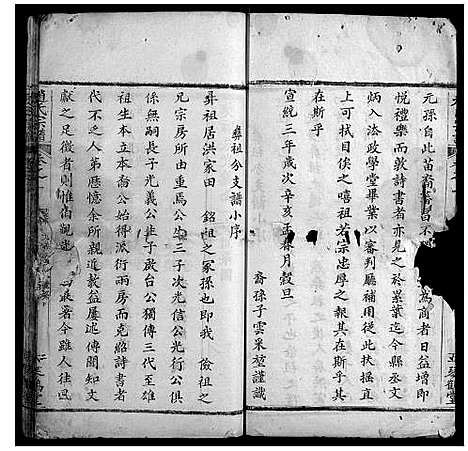 元孫自此苗裔
為商者日益增即
悅禮樂而敦詩書者亦見之於累葉迄今縣丞文
炳入法政學堂畢業以審判廳補用從此扶搖直
上可拭目俟之嘻祖若宗忠厚之報其在斯乎其
在斯乎
宣統三年歲次辛亥孟春月穀旦
裔孫子雲采堃謹識
彝祖分支譜小序
彝祖居洪家田 銘祖之冢孫也即我 儉祖之
兄宗房所由重焉公生三子次光信公光行公俱
係無嗣長子光義公生子啟台公獨傳三代至雄
祖生本立本喬公始得派衍兩房而克紹詩書者
代不乏人第歷憶余所親近教益屢述傳聞知文
獻之足徵者則惟
最著今雖人往